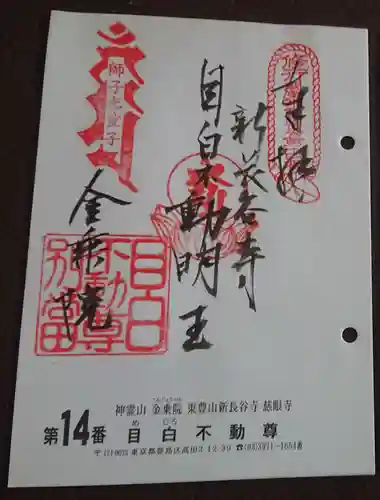 奉拝
新長谷寺
目白不動明王
金乗院
獅子吼童子
目白
不動尊
別當
神霊山 金乗院 東豊山新長谷寺 慈眼寺
こんじょういん
第14番 目白不動尊
めじろ
東京都豊島区高田2-12-39 ☎(03)3971-1654番